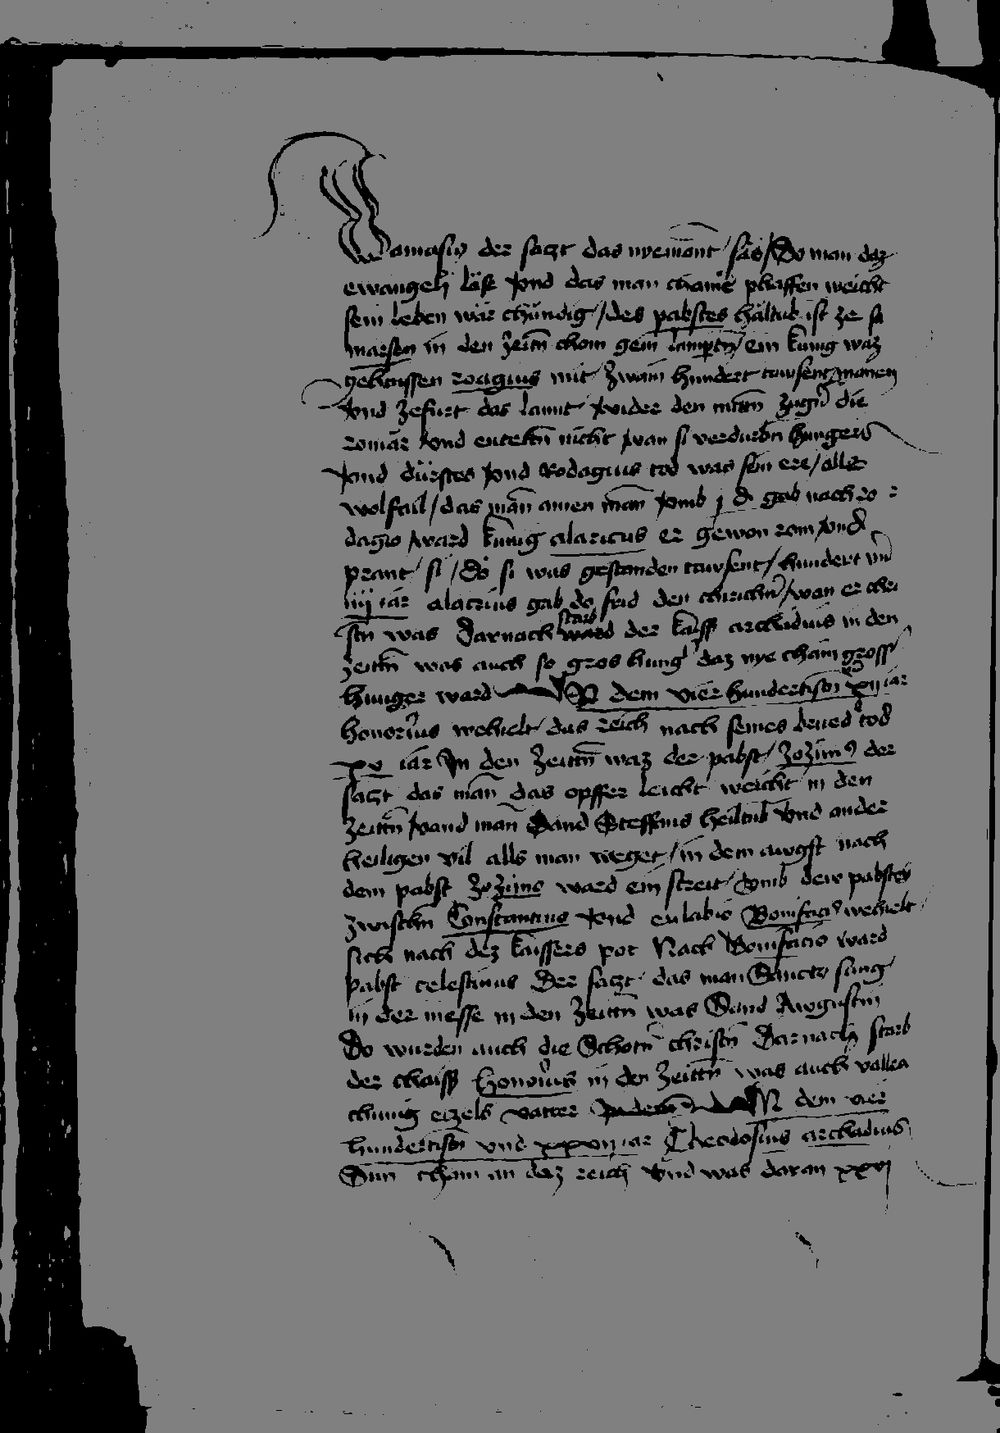 Damasio der saczt das nyemant säs / Do man daz
ewangelj läse vnd das man chainē phaffen weicht
sein leben wär chündig / des pabstes hailtub ist ze sā
marsen in den zeitn̄ chom gein lampten / ein kunig waz
gehaissen rodagius mit zwain hundert tawsent mannen
vnd zefurt das lannt wider den zugn̄ die
romär vnd entetn̄ nicht wan si verdurbn̄ hungers
vnd dürstes vnd Rodagius tod was sein ere / alle
wolfail / das man ainen man vmb j d gab nach ro
dagio ward kunig alaricus er gewon rom vnd
prant si / Do si was gestanden tawsent / hundert vnd
iiij iar alacrius gab do frid den christn̄ / wan er chri
stn̄ was Darnach starb der kaiss archadius in den
zeittn̄ was auch so gros hung daz nye chain grosser
hunger ward IN dem vierhundertistn̄ xij iar
honorius wehielt das reich nach seines brueder tod
xv iar In den zeittn̄ waz der pabst / Zozimus der
saczt das man das opffer leicht weicht in den
zeittn̄ vand man Sand Steffans heiltub vnd ander
heiligen vil alls man weget / in dem awgst nach
dem pabst Zozimo ward ein streit vmb den pabsten
zwischn̄ Constantius vnd eulabio Bonifacius wehielt
sich nach dez kaissers pot Nach Bonifacio ward
pabst celestinus Der saczt das man Sanctus sung
in der messe in den zeittn̄ was Sand Awgustin
Do wurden auch die Schotn̄ christn̄ Darnach starb
der chaiss Honorius in den zeittn̄ was auch valles
chunig eczels vatter IN dem vier
hundertistn̄ vnd xxvij iar Theodosius archadius
Sun cham an dez reich vnd was daran xxvj